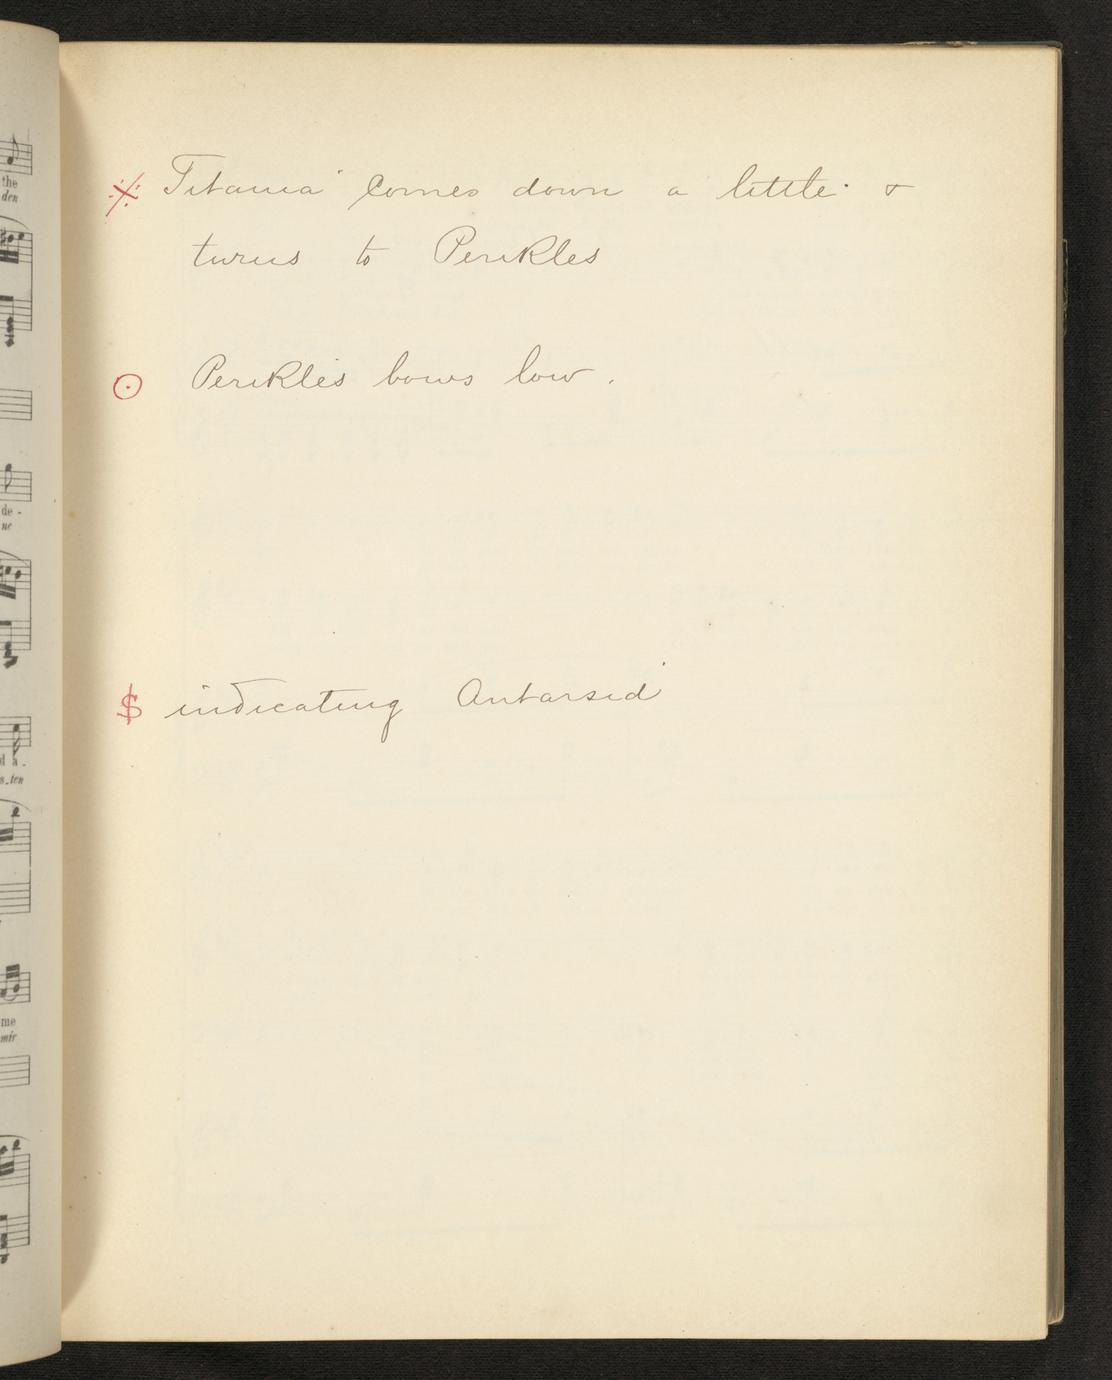 the
den
※ Titania comes down a little &
turns to Perikles
⊙ Perikles bows low.
de -
ne
$ indicating Antarsid
d a -
s - ten
me
mir